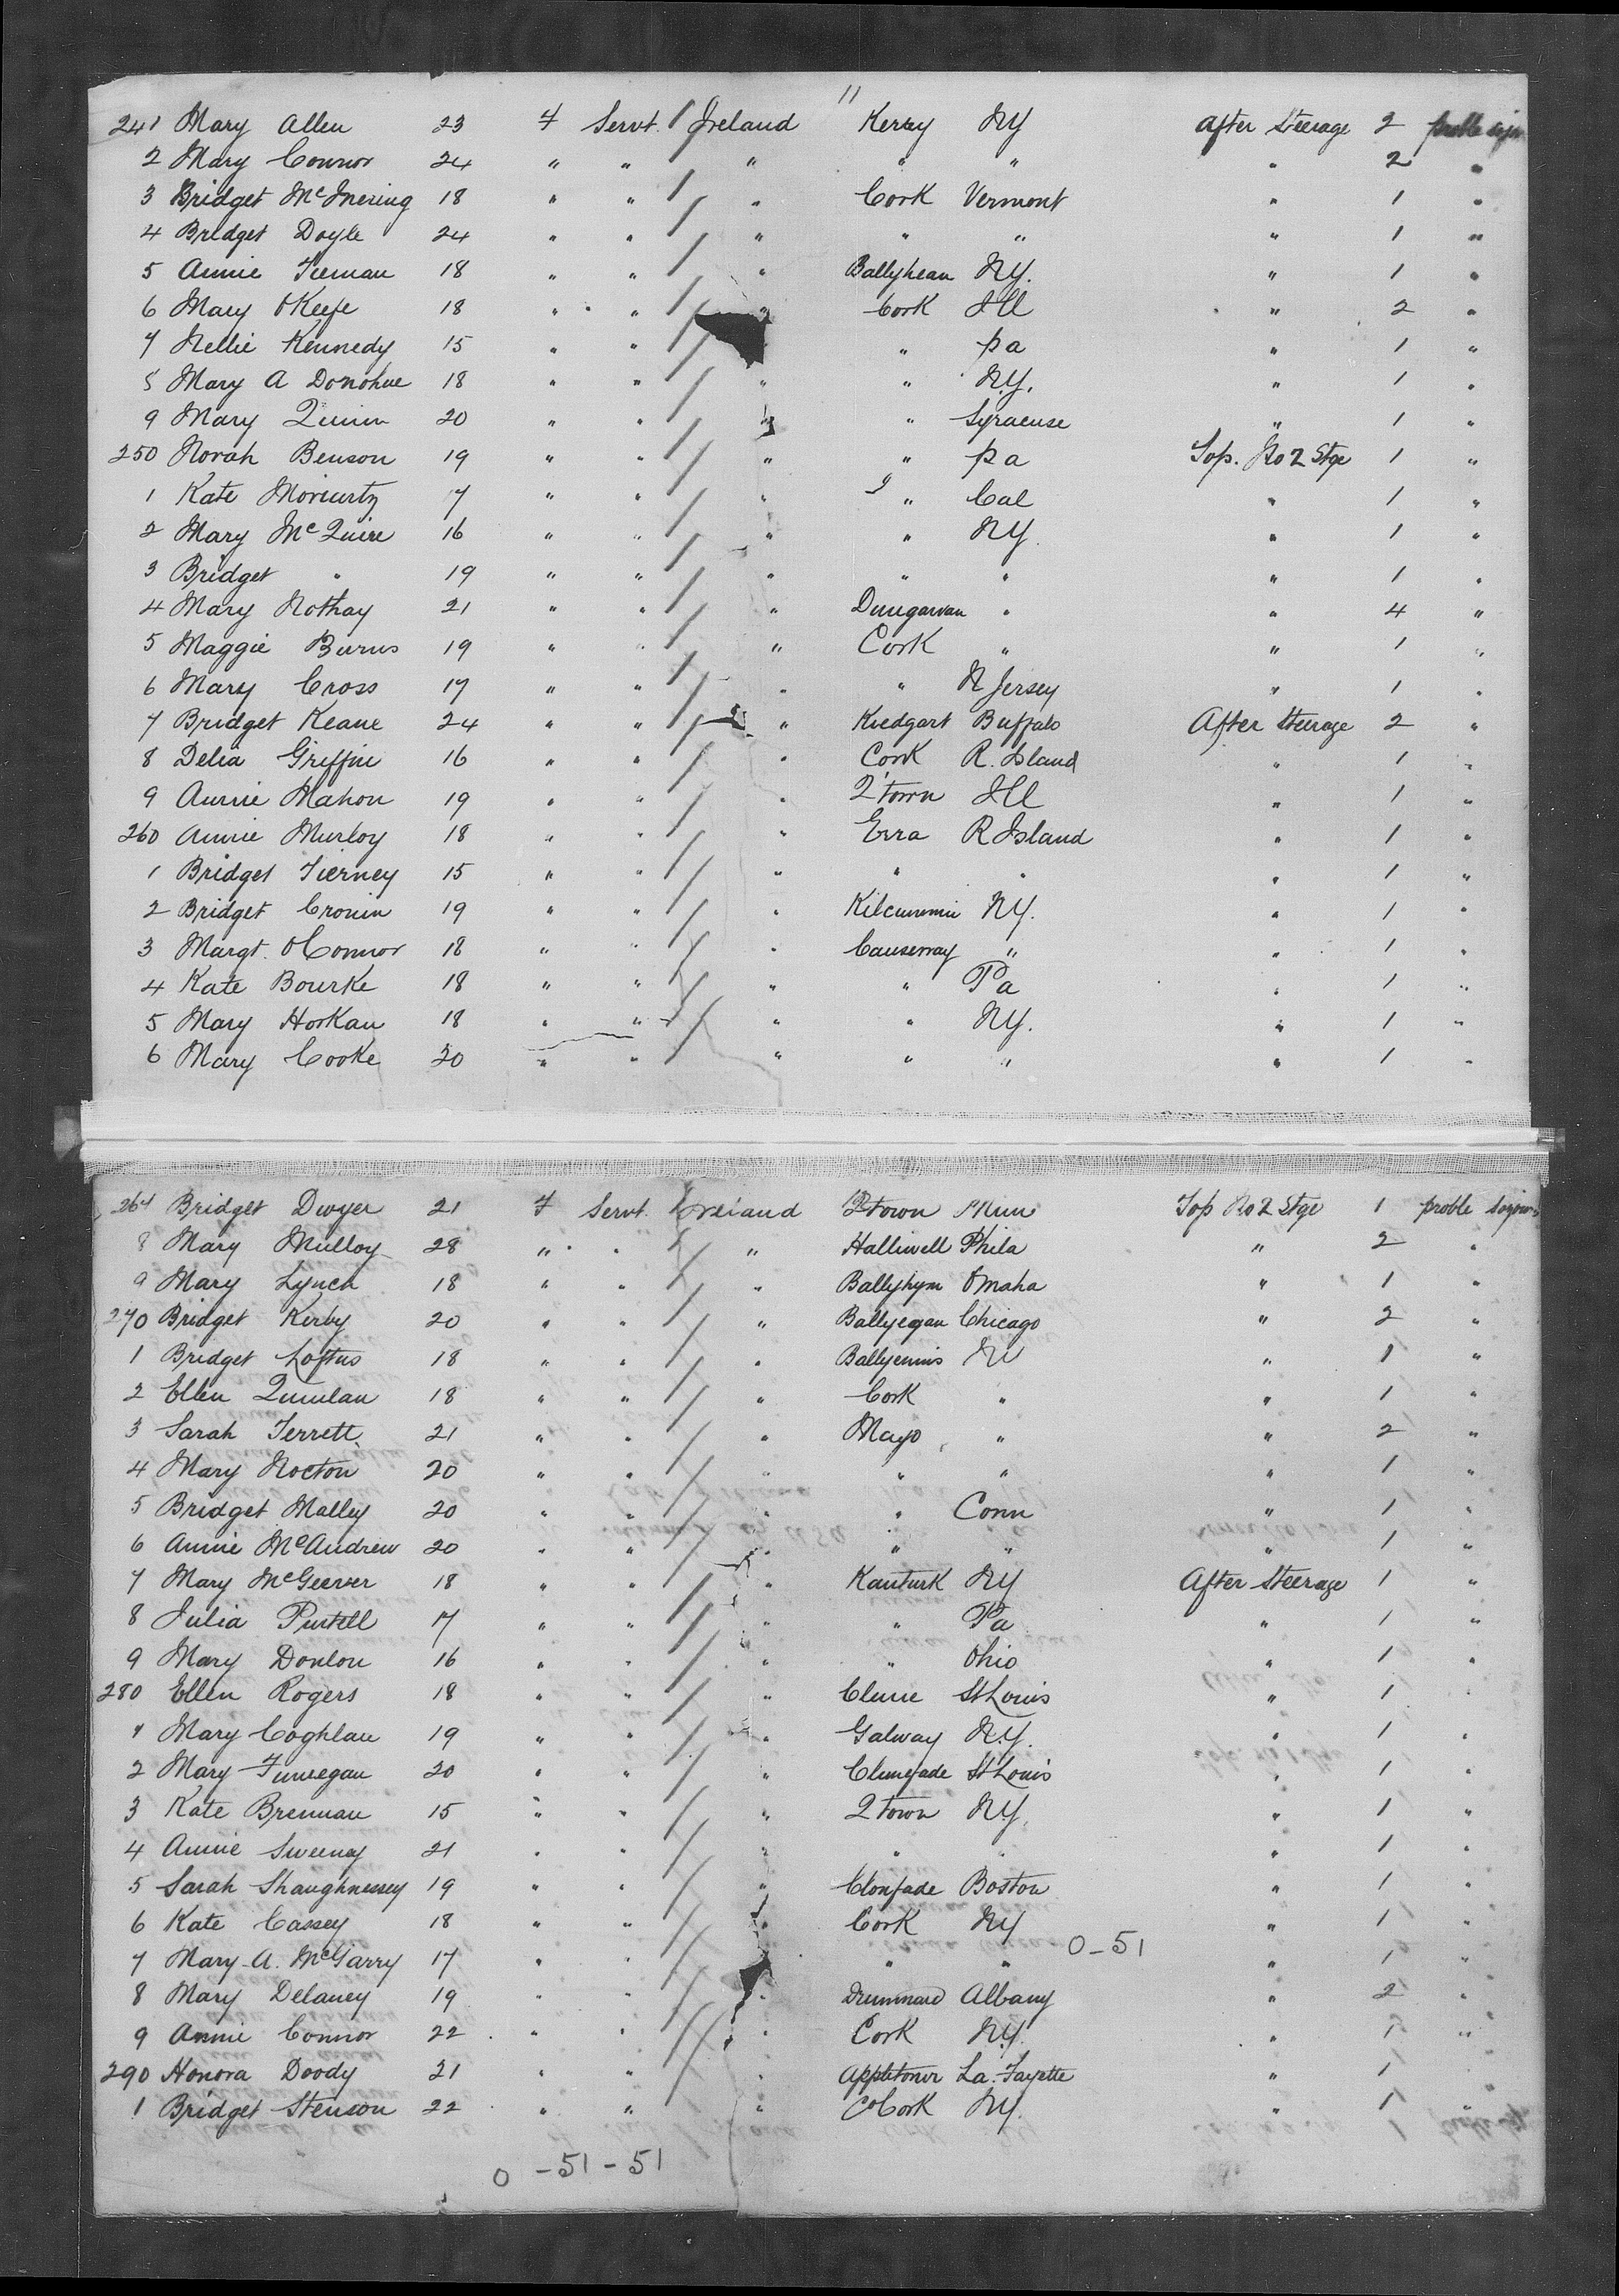 11
241 Mary Allen 23 F Servt. / Ireland Kerry NY After Steerage 2 proble sojn
2 Mary Connor 24 " " " " " " 2 "
3 Bridget McInering 18 " " / " Cork Vermont " 1 "
4 Bridget Doyle 24 " " / " " " " 1 "
5 Annie Tiernan 18 " " / " Ballyhean NY. " 1 "
6 Mary OKeefe 18 " " / " Cork Ill " 2 "
7 Nellie Kennedy 15 " " / " pa " 1 "
8 Mary A Donohue 18 " " / " " N.Y. " 1 "
9 Mary Quinn 20 " " / " " Syracuse " 1 "
250 Norah Benson 19 " " / " " pa Top. No 2 Stge 1 "
1 Kate Moriarty 7 " " / " " Cal " 1 "
2 Mary McQuire 16 " " / " " NY. " 1 "
3 Bridget " 19 " " / " " " " 1 "
4 Mary Nothay 21 " " / " Dungarvan " " 4 "
5 Maggie Burns 19 " " / " Cork " " 1 "
6 Mary Cross 17 " " / " " N Jersey " 1 "
7 Bridget Keane 24 " " / " Kiedgart Buffalo After Steerage 2 "
8 Delia Griffin 16 " " / " Cork R. Island " 1 "
9 Annie Mahon 19 " " / " Q'town Ill " 1 "
260 Annie Murloy 18 " " / " Erra R Island " 1 "
1 Bridget Tierney 15 " " / " " " " 1 "
2 Bridget Cronin 19 " " / " Kilcummin NY. " 1 "
3 Margt. OConnor 18 " " / " Causeway " " 1 "
4 Kate Bourke 18 " " / " " Pa " 1 "
5 Mary Horkan 18 " " / " " NY. " 1 "
6 Mary Cooke 20 " " / " " " " 1 "
267 Bridget Dwyer 21 F Servt. / Ireland Qtown Minn Top No 2 Stge 1 proble sojour
8 Mary Mulloy 28 " " / " Halliwell Phila " 2 "
9 Mary Lynch 18 " " / " Ballyhym Omaha " 1 "
270 Bridget Kirby 20 " " / " Ballyegan Chicago " 2 "
1 Bridget Loftus 18 " " / " Ballyennis NY " 1 "
2 Ellen Quinlan 18 " " / " Cork " " 1 "
3 Sarah Terrett 21 " " / " Mayo " " 2 "
4 Mary Nocton 20 " " / " " " " 1 "
5 Bridget Malley 20 " " / " " Conn " 1 "
6 Annie McAndrew 20 " " / " " " " 1 "
7 Mary McGeever 18 " " / " Kanturk NY After Steerage 1 "
8 Julia Purtell 17 " " / " " Pa " 1 "
9 Mary Donlon 16 " " / " " Ohio " 1 "
280 Ellen Rogers 18 " " / " Clune St Louis " 1 "
1 Mary Coghlan 19 " " / " Galway N.Y. " 1 "
2 Mary Finnegan 20 " " / " Clunefade St Louis " 1 "
3 Kate Brennan 15 " " / " Qtown NY. " 1 "
4 Annie Sweeney 21 " " / " " " " 1 "
5 Sarah Shaughnessey 19 " " / " Clonfade Boston " 1 "
6 Kate Cassey 18 " " / " Cork NY " 1 "
0-51
7 Mary A. McGarry 17 " " / " " " " 1 "
8 Mary Delaney 19 " " / " Drummard Albany " 2 "
9 Annie Connor 22 " " / " Cork NY. " 1 "
290 Honora Doody 21 " " / " Appletown La. Fayette " 1
1 Bridget Stenson 22 " " / " CoCork NY. " 1 "
0 -51-51